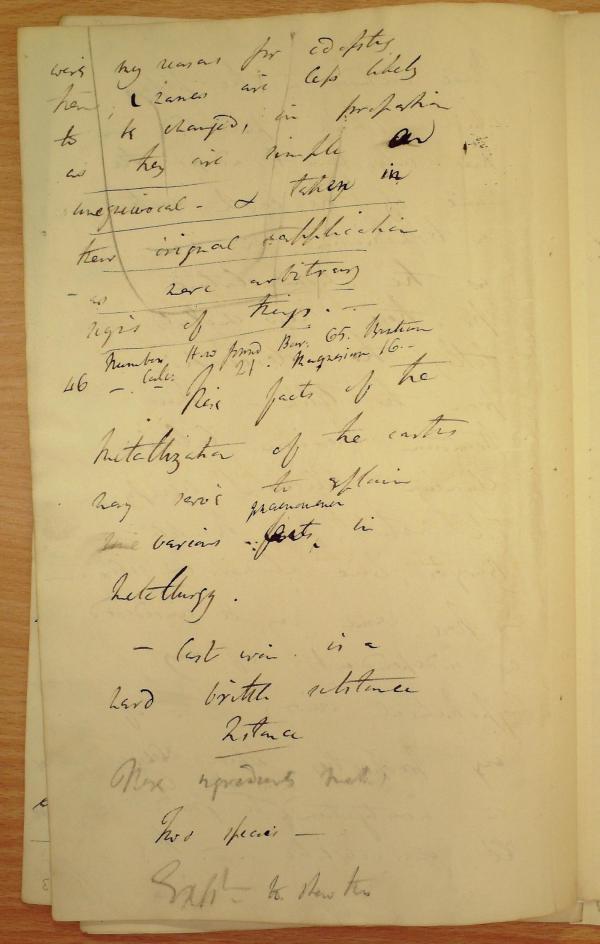 were my reasons for adopting
them, names are less likely
to be changed, in proportion
as they are simple and
unequivocal - & taken in
their original application
- as mere arbitrary
signs of things. -
Number How found Bar. 65.
46 - Calc. 21. Magnesium 16 -
These facts of the
Metallization of the earths
may serve to explain
phaenomena
various facts in
Metallurgy.
- Cast iron is a
hard brittle substance
Instance
These ingredients
Two species -
Expt to shew this